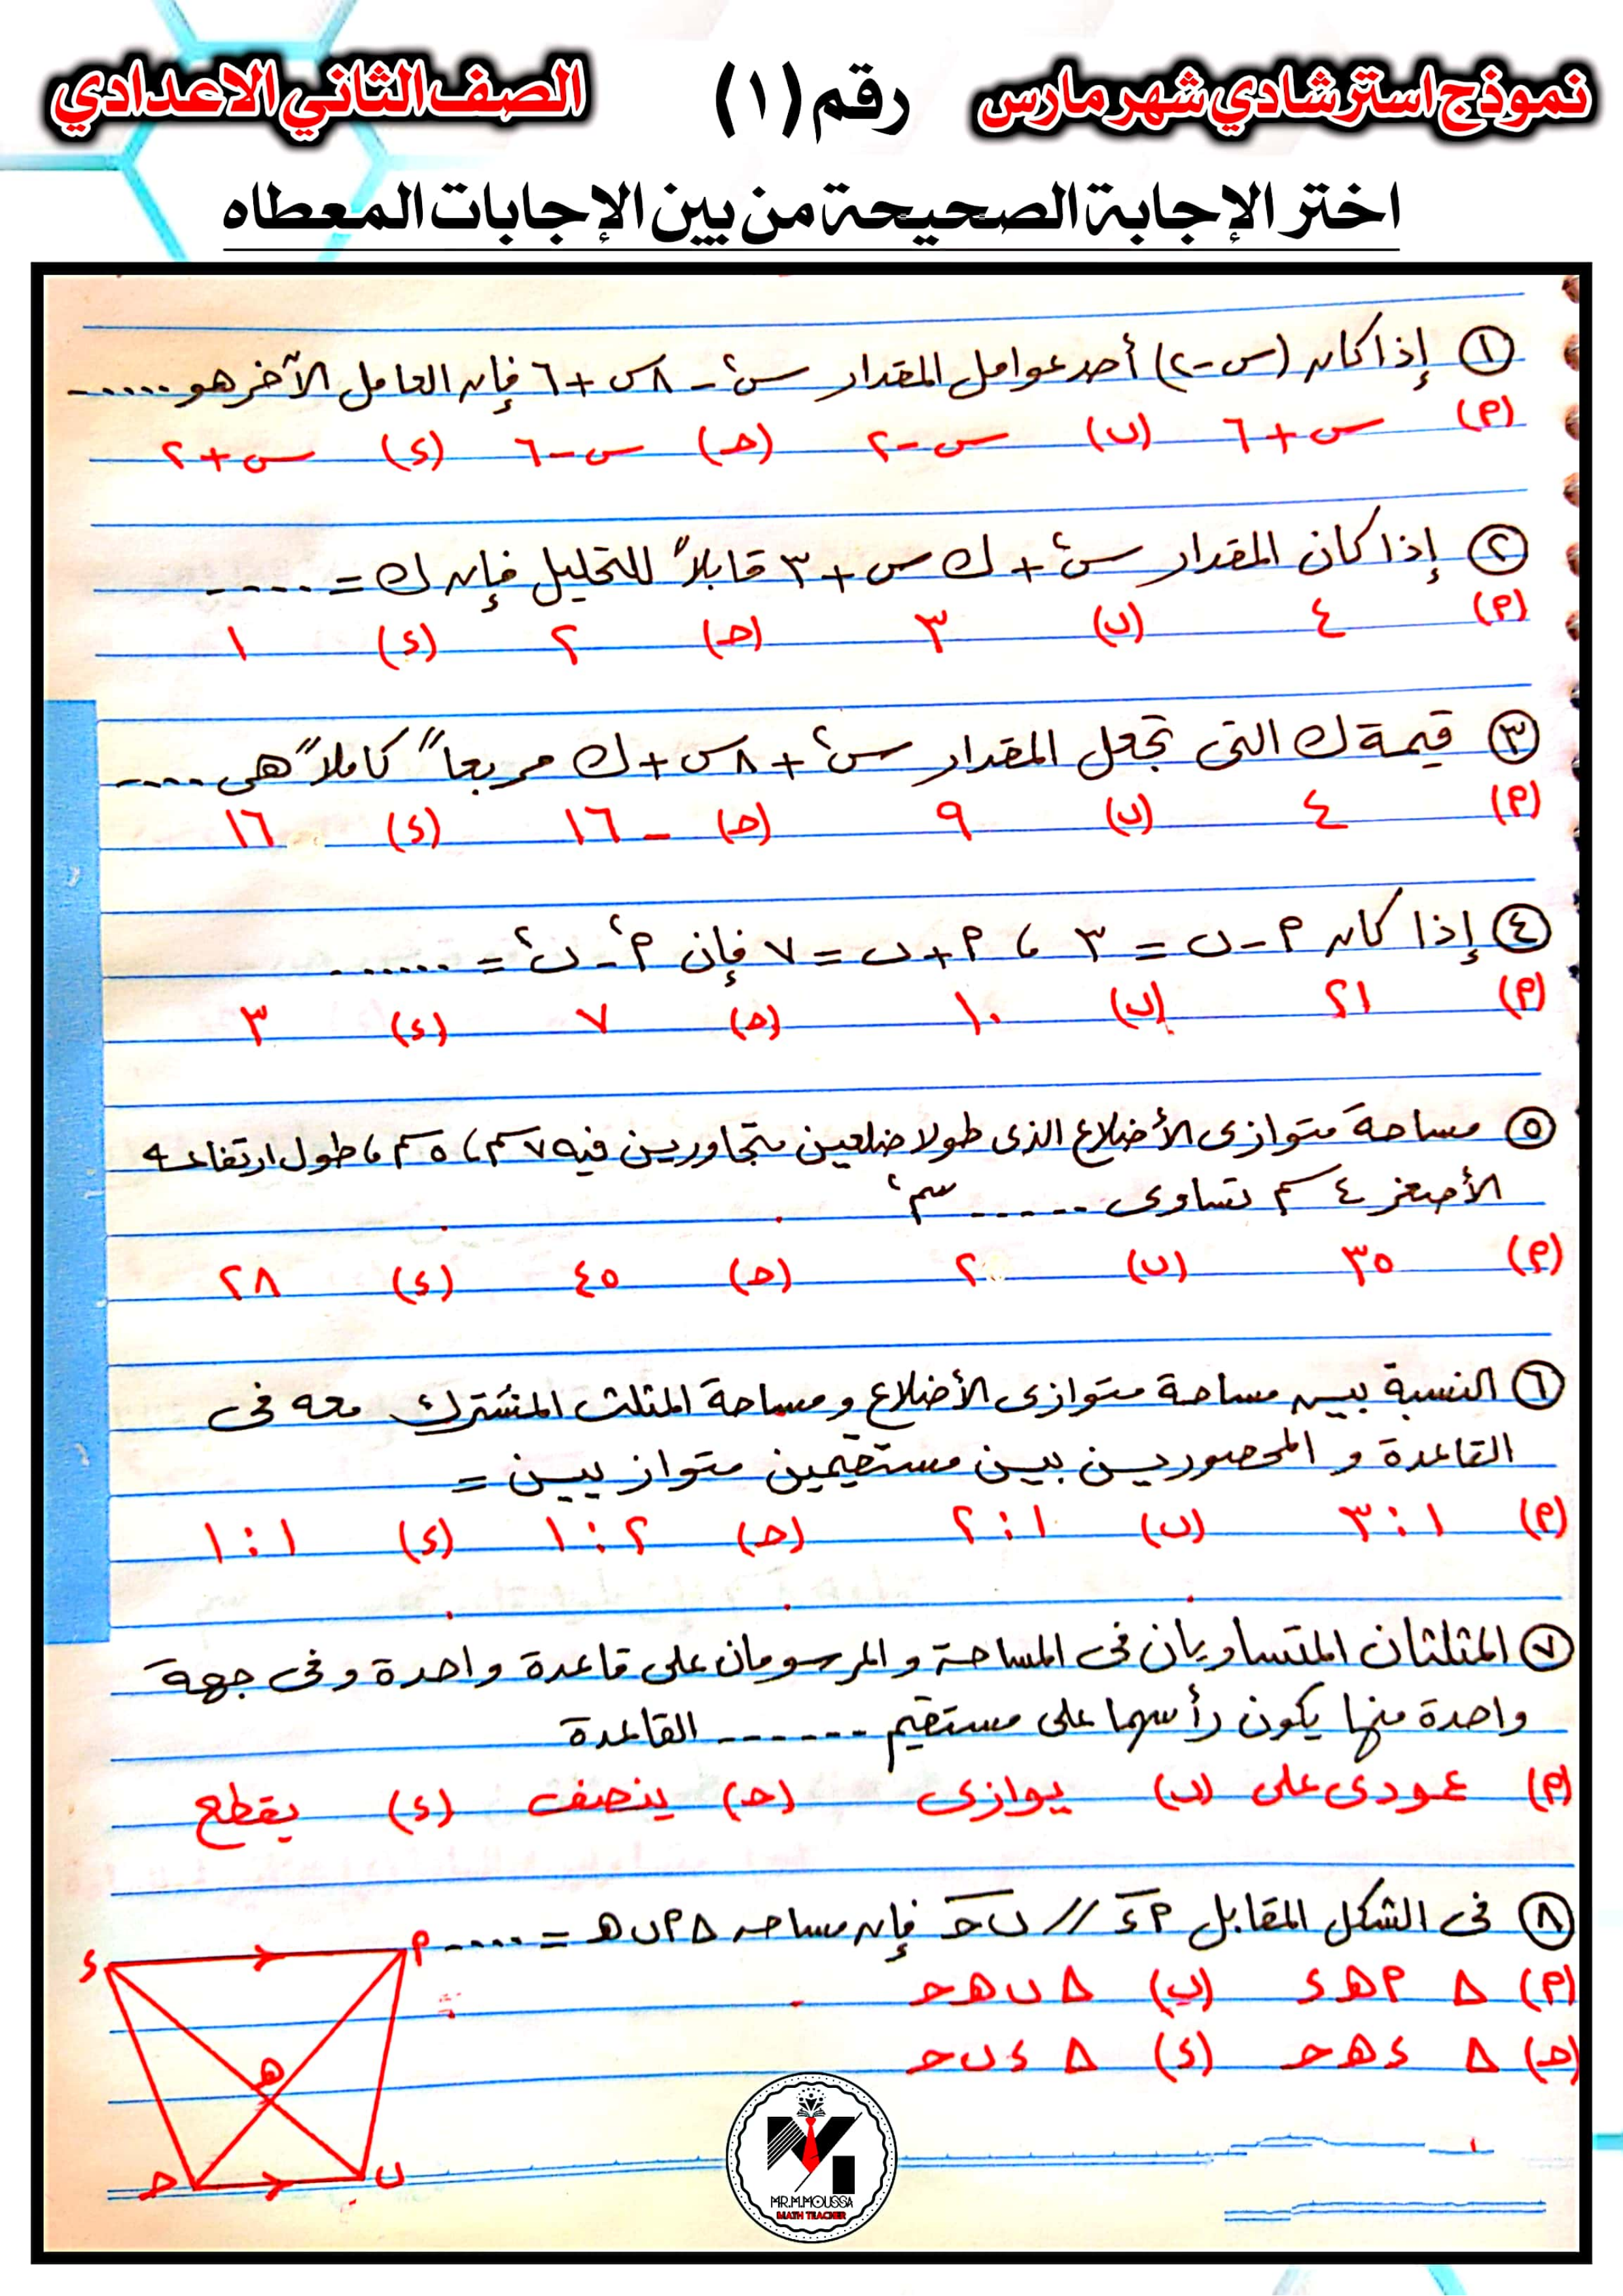 نموذج استرشادي شهر مارس رقم (١) الصف الثاني الاعدادي
اختر الإجابة الصحيحة من بين الإجابات المعطاه
١ إذا كان (س-٢) أحد عوامل المقدار س² - ٨س + ٦ فإن العامل الآخر هو ......
(P) س + ٦ (ب) س - ٢ (ح) س - ٦ (د) س + ٢
٢ إذا كان المقدار س² + ك س + ٣ قابلاً للتحليل فإن ك = ....
(P) ٤ (ب) ٣ (ح) ٢ (د) ١
٣ قيمة ك التى تجعل المقدار س² + ٨س + ك مربعاً كاملاً هى ....
(P) ٤ (ب) ٩ (ح) - ١٦ (د) ١٦
٤ إذا كان P - ب = ٣ ، P + ب = ٧ فإن P² - ب² = ......
(P) ٢١ (ب) ١٠ (ح) ٧ (د) ٣
٥ مساحة متوازى الأضلاع الذى طولا ضلعين متجاورين فيه ٧سم ، ٥سم ، طول ارتفاعه
الأصغر ٤سم تساوى ..... سم²
(P) ٣٥ (ب) ٢٠ (ح) ٤٥ (د) ٢٨
٦ النسبة بين مساحة متوازى الأضلاع و مساحة المثلث المشترك معه فى
القاعدة و المحصوريين بين مستقيمين متوازيين =
(P) ١ : ٣ (ب) ١ : ٢ (ح) ٢ : ١ (د) ١ : ١
٧ المثلثان المتساويان فى المساحة و المرسومان على قاعدة واحدة و فى جهة
واحدة منها يكون رأسهما على مستقيم ...... القاعدة
(P) عمودى على (ب) يوازى (ح) ينصف (د) يقطع
٨ فى الشكل المقابل P د // ب ح فإن مساحه Δ P ب ه = .....
(P) Δ P ه د (ب) Δ ب ه ح
(ح) Δ د ه ح (د) Δ د ب ح
د P
ه
ح ب
MR.M.MOUSSA
MATH TEACHER